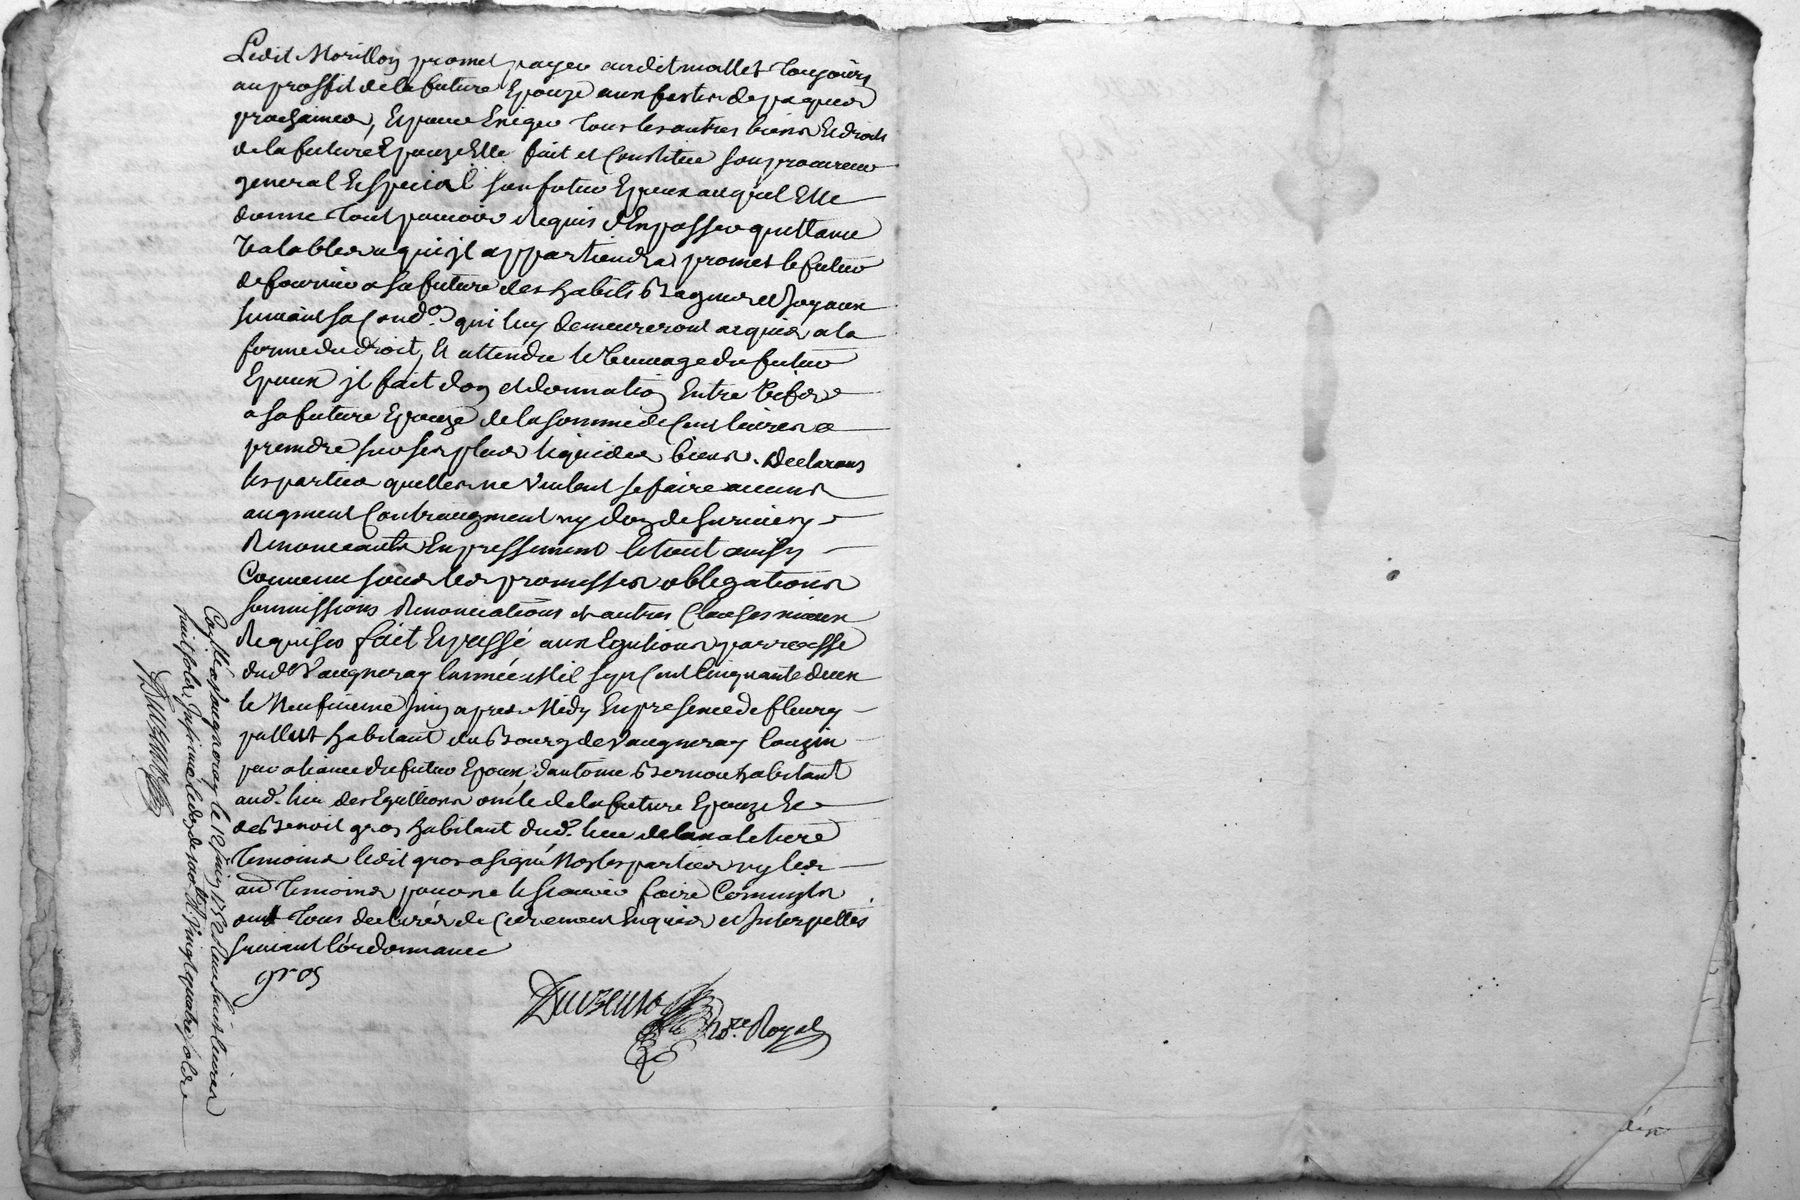 Ledit Morillon promet payer audit mallet Toujours
au proffit de la future Epouze aux festes de paques
prochaines, Et pour Exiger tous les autres biens Et droits
de la future Epouze Elle fait et Constitue son procureur
general Et special son futur Epoux auquel Elle
donne tout pouvoir Requis d'En passer quittance
Valables a qui jl appartiendra promet le futur
de fournir a sa future des habits Bagues et Joyaux
suivant sa Condon. qui luy demeureront acquis a la
forme du Droit, Et attendu le Veuvage du futur
Epoux jl fait don et donnation Entre Vifs
a sa future Epouze de la somme de Cent livres a
prendre sur ses plus liquides biens. Declarans
les parties quelles ne Veulent se faire aucuns
augment Contraugment ny don de survie y
Renonceants Expressement le tout ainsy
Convenu sous les promesses obligations
soumissions Renonciations et autres Clauses mieux
Requises fait Et passé aux Eguilions parroisse
dud. Vaugneray l'année Mil sept Cent Cinquante deux
le Neufvieme Juin apres Midy En presence de fleury
pallet habitant du Bourg de Vaugneray Couzin
par aliance du futur Epoux, d'antoine Bernou habitant
aud. lieu des Eguillions oncle de la future Epouze Et
de Benoit gros habitant dud. lieu de
Temoins ledit gros a signé Non les parties ny les
aud Temoins pour ne le sçavoir faire Comm'ils
ont tous declarés de Ce Enquis et Interpellés
suivant l'ordonnance
gros
Duvzeur
nre. Royal
Conllé a Vaugneray le 12 Juin 1752 Reçu huit livres
huit sols, Insinué led. don Rx. Vingt quatre sols